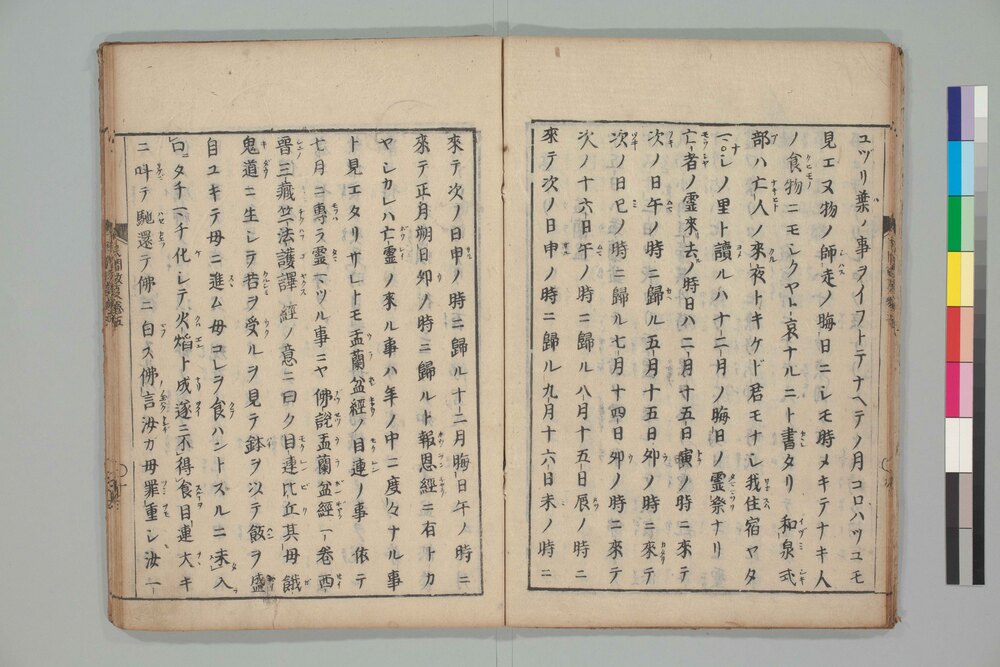 ユヅリ葉ノ事ヲイフトテナヘテノ月コロハツユモ
見エヌ物ノ師走ノ晦日ニシモ時メキテナキ人
ノ食物ニモシクヤト哀ナルニト書タリ 和泉式
部ハ亡人ノ來夜トキケド君モナシ我住宿ヤタ
マナシノ里ト讀ルハ十二月ノ晦日ノ靈祭ナリ
亡者ノ靈來去ノ時日ハ二月十五日寅ノ時ニ來テ
次ノ日午ノ時ニ歸ル五月十五日卯ノ時ニ來テ
次ノ日巳ノ時ニ歸ル七月十四日卯ノ時ニ來テ
次ノ十六日午ノ時ニ歸ル八月十五日辰ノ時ニ
來テ次ノ日申ノ時ニ歸ル九月十六日未ノ時ニ
來テ次ノ日申ノ時ニ歸ル十二月晦日午ノ時ニ
來テ正月朔日卯ノ時ニ歸ルト報恩經ニ有トカ
ヤシカレハ亡靈ノ來ル事ハ年ノ中ニ度々ナル事
ト見エタリサレトモ盂蘭盆經ノ目連ノ事ニ依テ
七月ニ專ラ靈マツル事ニヤ 佛說盂蘭盆經一卷西
晉三藏竺法護譯 經ノ意ニ曰ク目連比丘其母餓
鬼道ニ生シテ苦ヲ受ルヲ見テ鉢ヲ以テ飯ヲ盛
自ユキテ母ニ進ム母コレヲ食ハントスルニ未入
口タチマチ化シテ火焰ト成遂ニ不得食目連大キ
ニ叫テ馳還テ佛ニ白ス佛言汝カ母罪重シ汝一